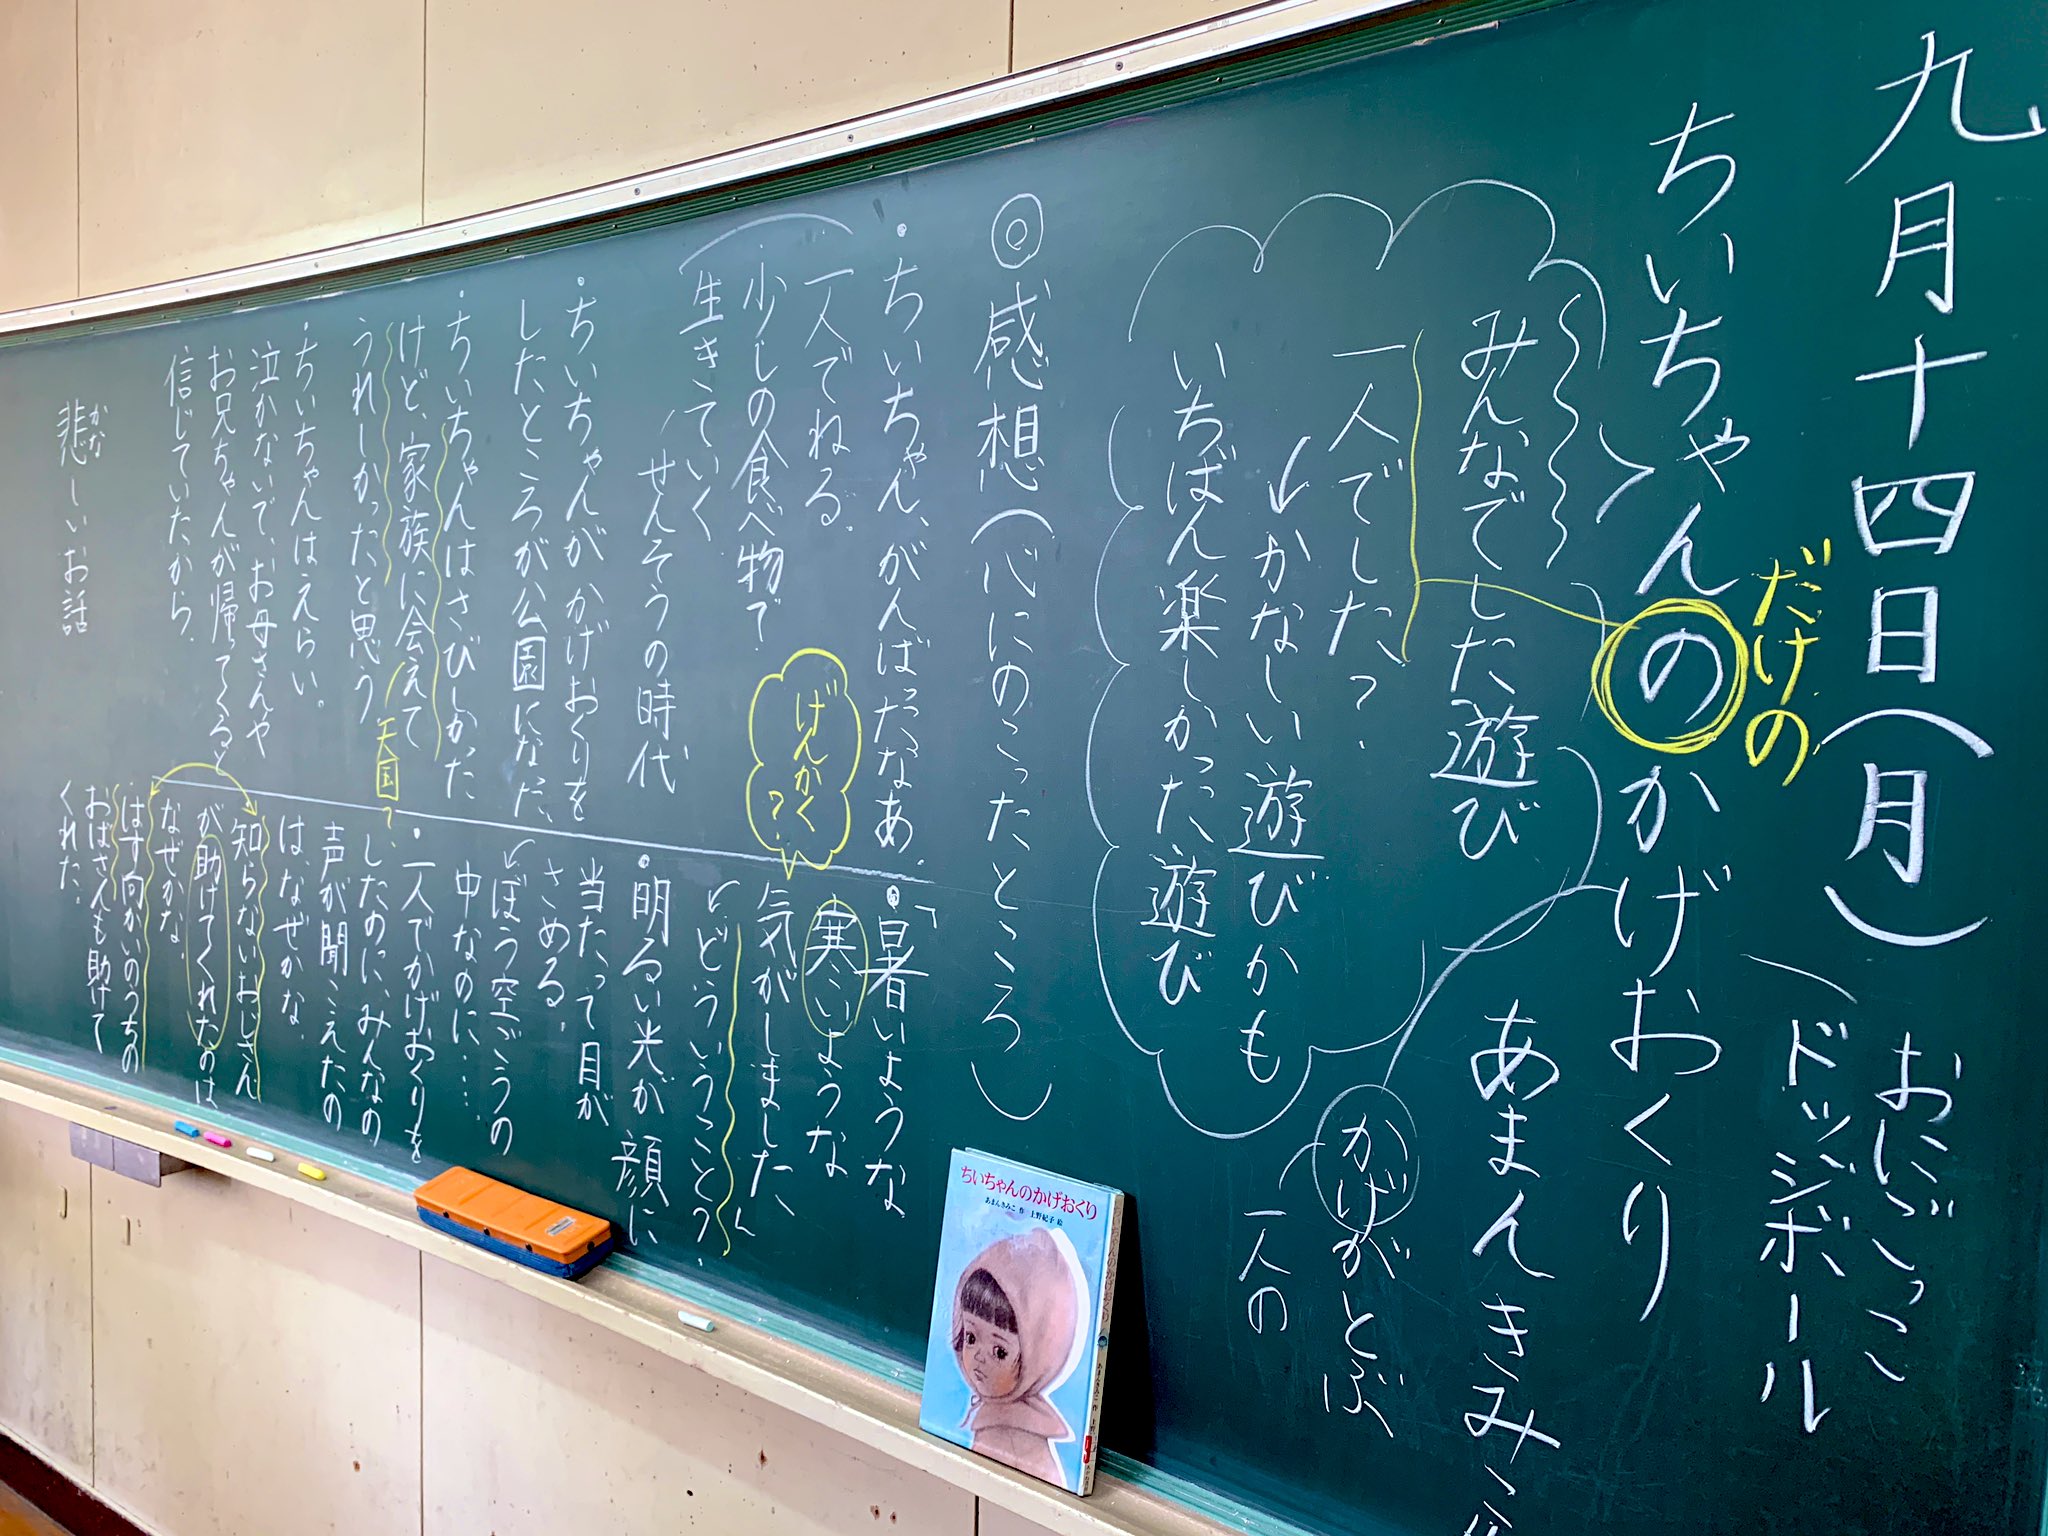 九月十四日(月)
おにごっこ
ドッジボール
だけの
ちいちゃんのかげおくり
あまんきみこ
みんなでした遊び
一人でした?
↓かなしい遊びかも
いちばん楽しかった遊び
かげがとぶ
一人の
◎感想(心にのこったところ)
・ちいちゃん、がんばったなあ。
・一人でねる。
少しの食べ物で
生きていく
せんそうの時代
・ちいちゃんがかげおくりを
したところが公園になった。
・ちいちゃんはさびしかった
けど、家族に会えて
うれしかったと思う
天国?
・ちいちゃんはえらい。
泣かないで、お母さんや
お兄ちゃんが帰ってくると
信じていたから。
かな
悲しいお話
・「暑いような
寒いような
気がしました」
げんかく?
↓どういうこと?
・明るい光が顔に
当たって目が
さめる。
↓ぼう空ごうの
中なのに…
・一人でかげおくりを
したのに、みんなの
声が聞こえたの
は、なぜかな。
知らないおじさん
が助けてくれたのは
なぜかな。
はす向かいのうちの
おばさんも助けて
くれた。
ちいちゃんのかげおくり
あまんきみこ 作 上野紀子 絵